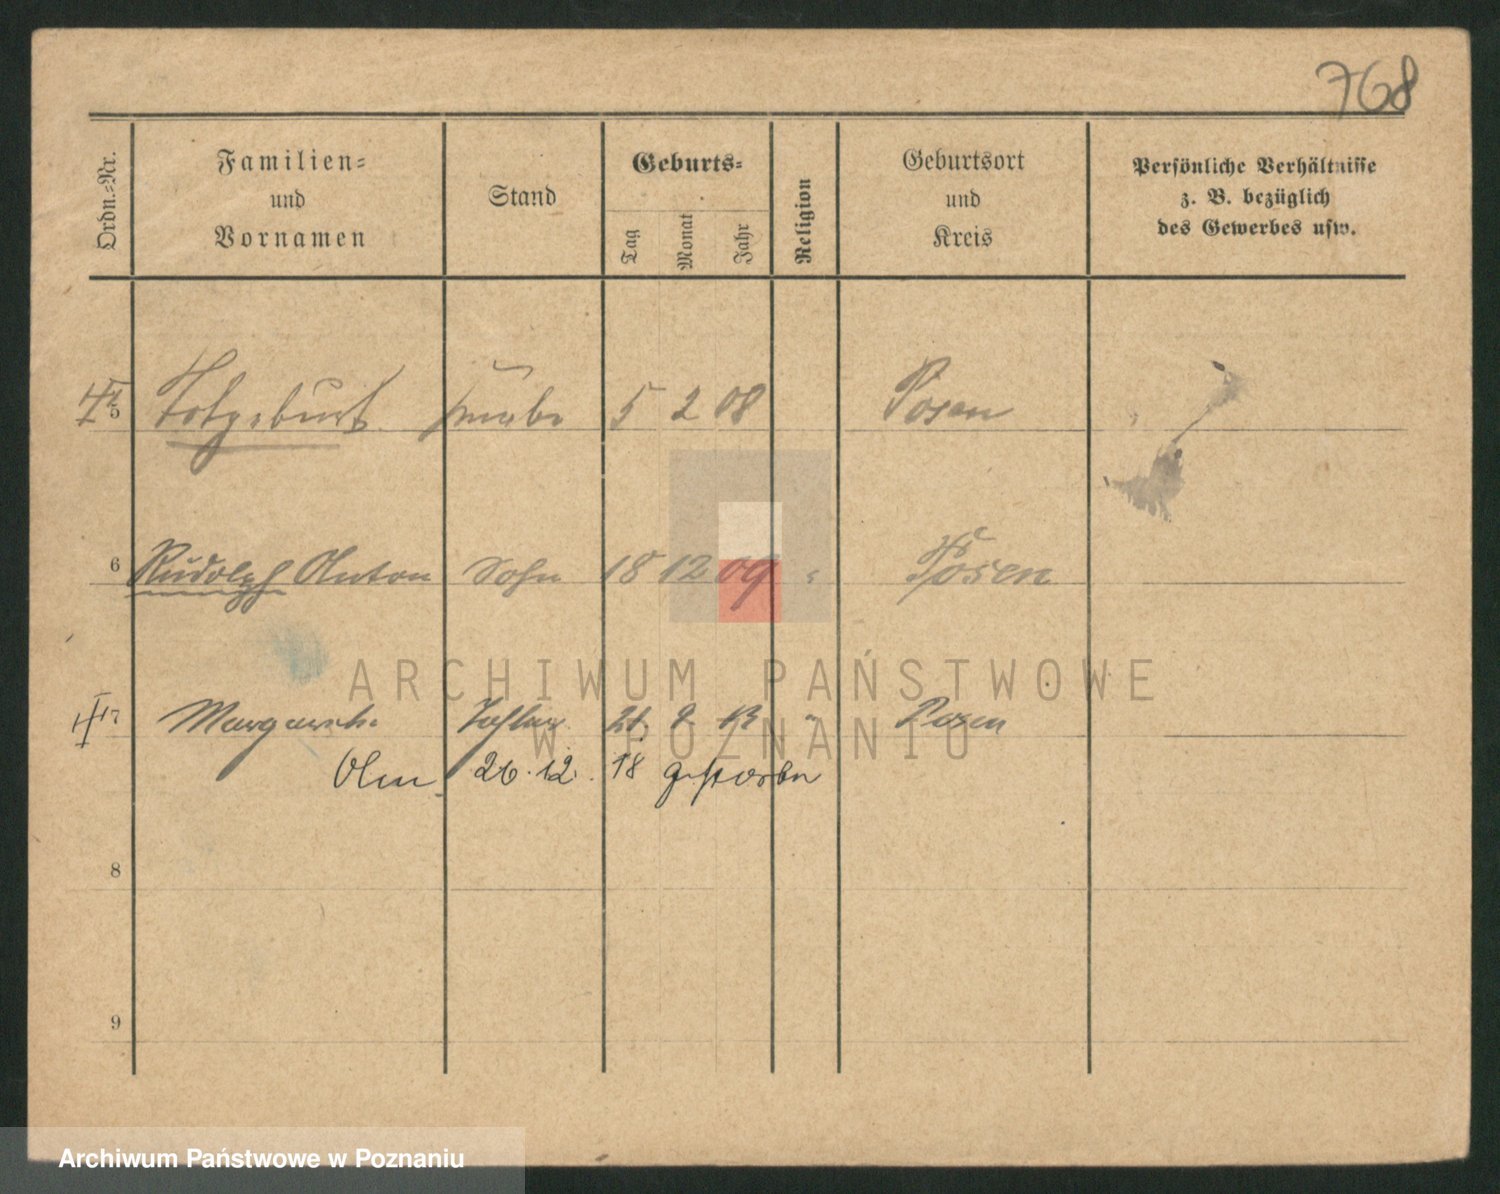 768
Ordn.-Nr.
Familien-
und
Vornamen
Stand
Geburts-
Tag
Monat
Jahr
Religion
Geburtsort
und
Kreis
Persönliche Verhältnisse
z. B. bezüglich
des Gewerbes usw.
5 Totgeburt Knabe 5 2 08 Posen
6 Rudolph Anton Sohn 18 12 09 Posen
Margarethe Tochter 21. 13 Posen
26. 12. 18 gestorben
8
9
ARCHIWUM PAŃSTWOWE
W POZNANIU
Archiwum Państwowe w Poznaniu